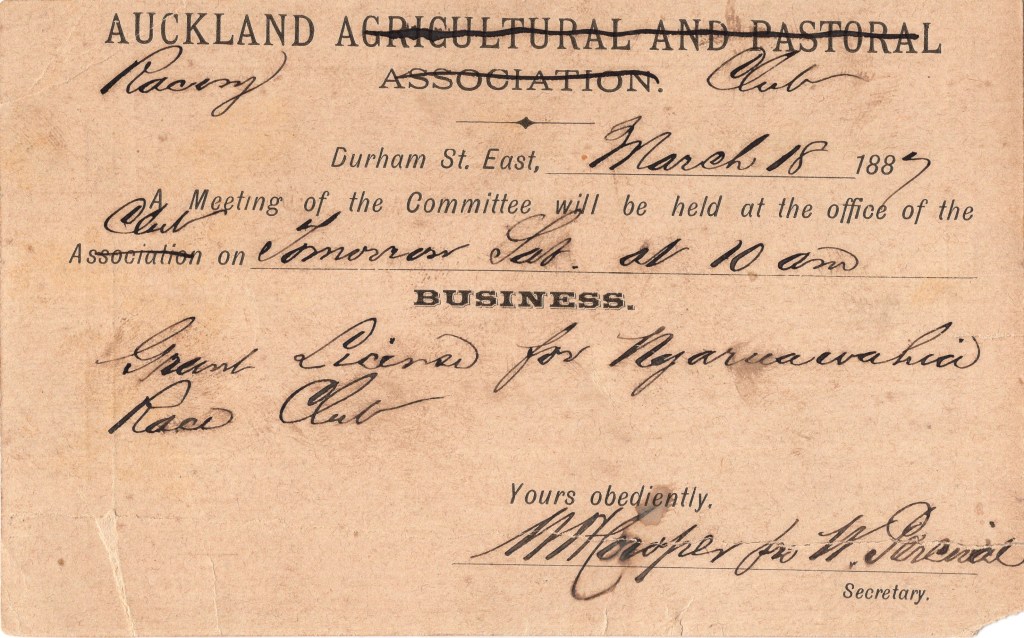 AUCKLAND AGRICULTURAL AND PASTORAL
Racing ASSOCIATION. Club
Durham St. East, March 18 1887
A Meeting of the Committee will be held at the office of the
Club
Association on Tomorrow Sat. at 10 am
BUSINESS.
Grant License for Ngaruawahia
Race Club
Yours obediently,
WH Cooper for W. Percival
Secretary.